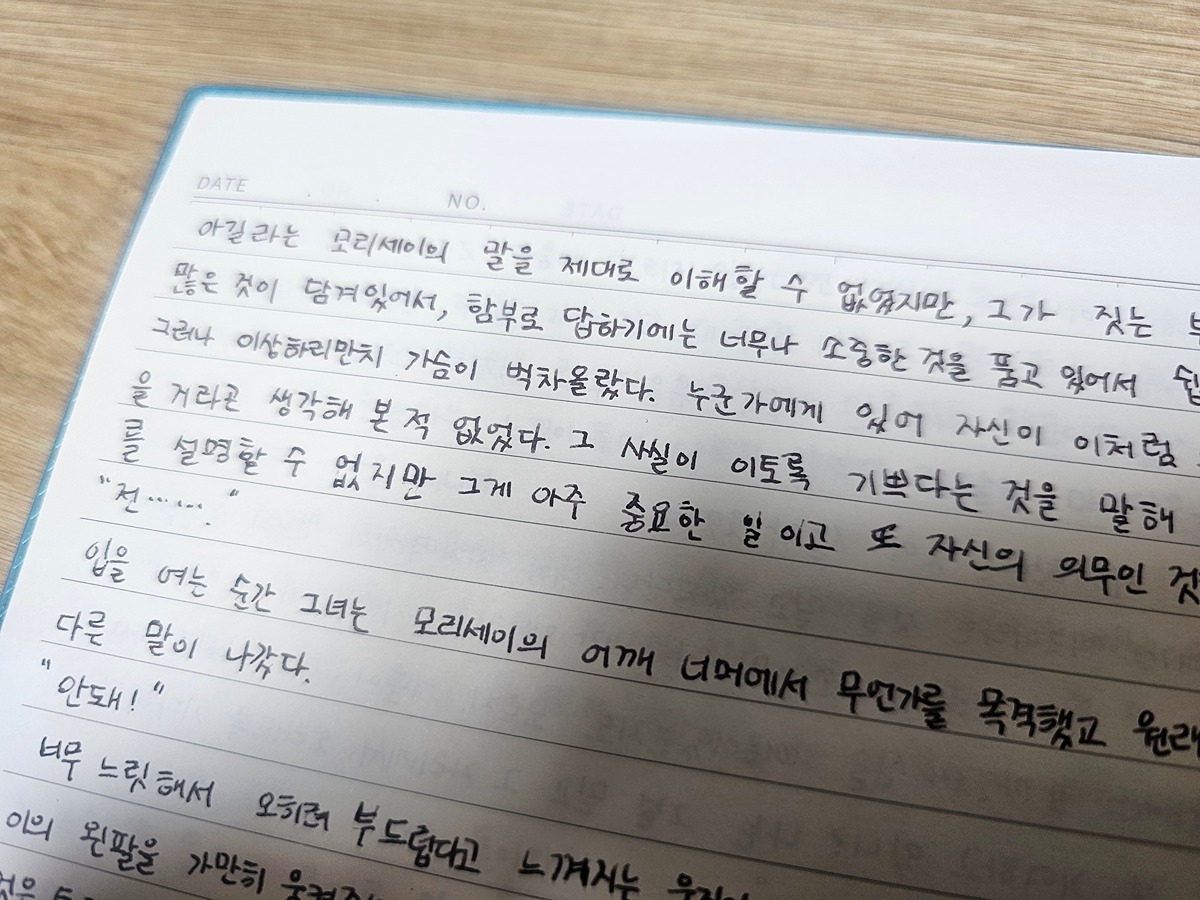 DATE . . NO.
아길라는 모리세이의 말을 제대로 이해할 수 없었지만, 그가 짓는
많은 것이 담겨있어서, 함부로 답하기에는 너무나 소중한 것을 품고 있어서 쉽
그러나 이상하리만치 가슴이 벅차올랐다. 누군가에게 있어 자신이 이처럼
을 거라곤 생각해 본 적 없었다. 그 사실이 이토록 기쁘다는 것을 말해
를 설명할 수 없지만 그게 아주 중요한 일이고 또 자신의 의무인 것
"전……."
입을 여는 순간 그녀는 모리세이의 어깨 너머에서 무언가를 목격했고 원래
다른 말이 나갔다.
"안돼!"
너무 느릿해서 오히려 부드럽다고 느껴지는
이의 왼팔을 가만히
것은